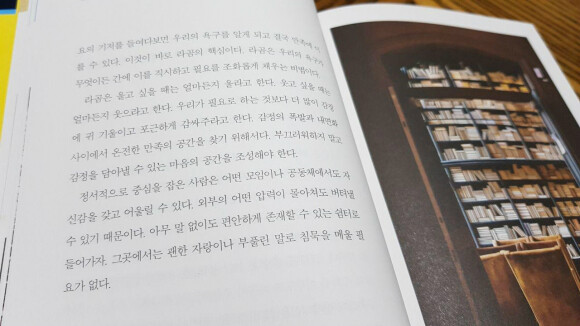 요의 기저를 들여다보면 우리의 욕구를 알게 되고 결국 만족에 이
를 수 있다. 이것이 바로 라곰의 핵심이다. 라곰은 우리의 욕구가
무엇이든 간에 이를 직시하고 필요를 조화롭게 채우는 비법이다.
라곰은 울고 싶을 때는 얼마든지 울라고 한다. 웃고 싶을 때는
얼마든지 웃으라고 한다. 우리가 필요로 하는 것보다 더 많이 감정
에 귀 기울이고 포근하게 감싸주라고 한다. 감정의 폭발과 내면화
사이에서 온전한 만족의 공간을 찾기 위해서다. 부끄러워하지 말고
감정을 담아낼 수 있는 마음의 공간을 조성해야 한다.
정서적으로 중심을 잡은 사람은 어떤 모임이나 공동체에서도 자
신감을 갖고 어울릴 수 있다. 외부의 어떤 압력이 몰아쳐도 버텨낼
수 있기 때문이다. 아무 말 없이도 편안하게 존재할 수 있는 쉼터로
들어가자. 그곳에서는 괜한 자랑이나 부풀린 말로 침묵을 메울 필
요가 없다.